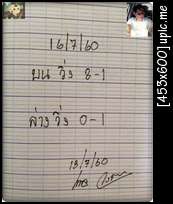 16/7/60
บน วิ่ง 8-1
ล่าง วิ่ง 0-1
13/7/60
[453x600] upic.me